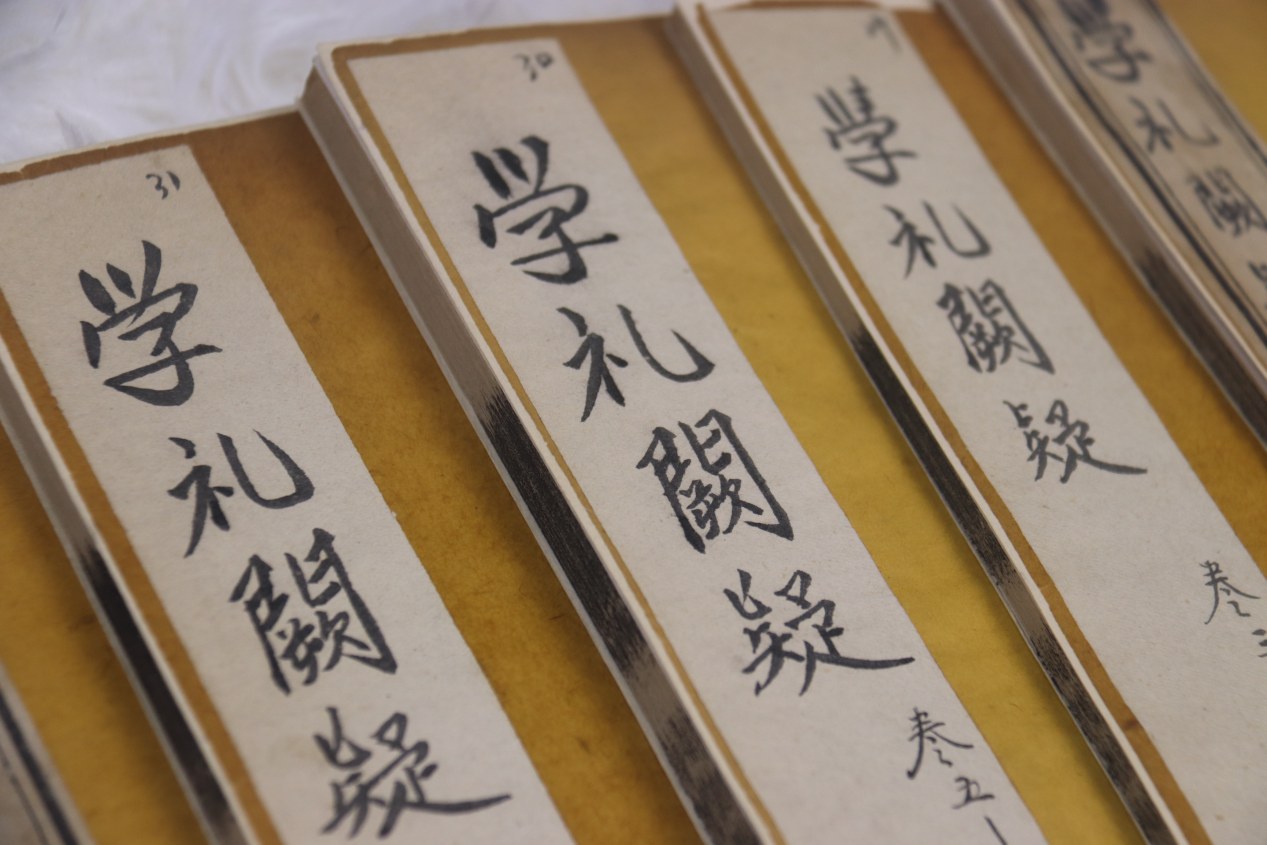 31
学礼闕疑
30
学礼闕疑
卷五
学礼闕疑
卷三
学礼闕